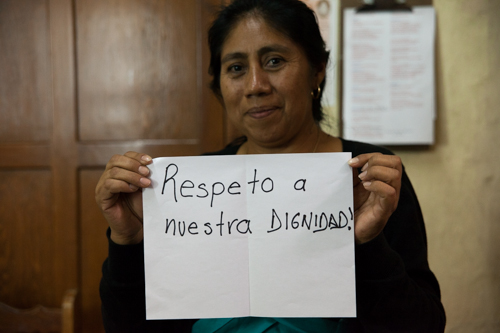 Respeto a
nuestra DIGNIDAD!